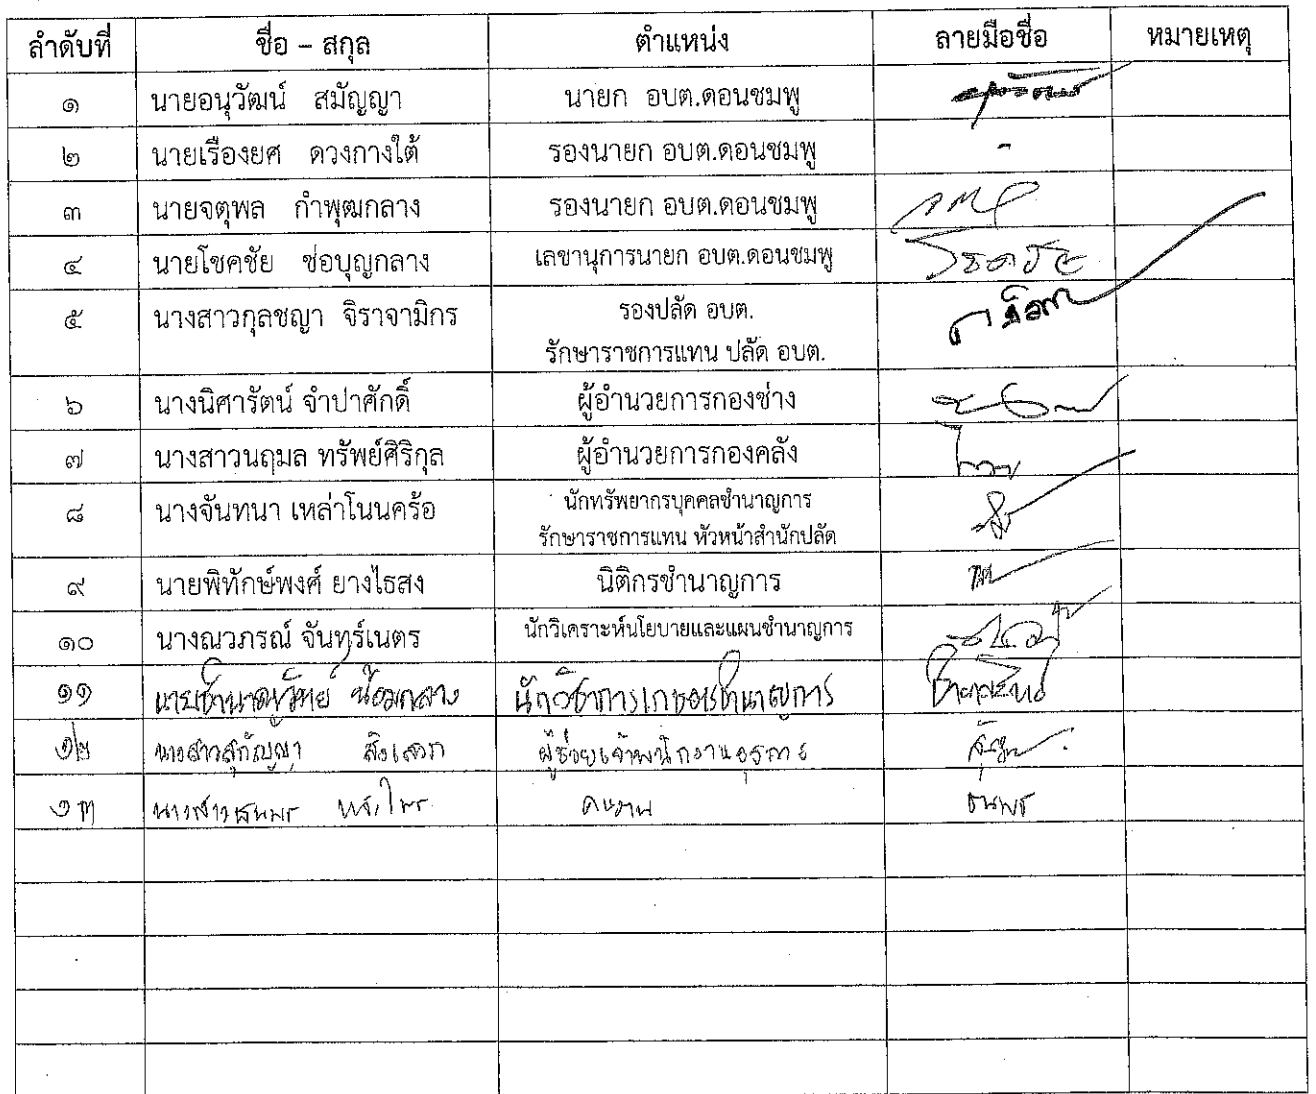 ลำดับที่ ชื่อ – สกุล ตำแหน่ง ลายมือชื่อ หมายเหตุ
๑ นายอนุวัฒน์ สมัญญา นายก อบต.ดอนชมพู
๒ นายเรืองยศ ดวงกางใต้ รองนายก อบต.ดอนชมพู -
๓ นายจตุพล กำพุฒกลาง รองนายก อบต.ดอนชมพู
๔ นายโชคชัย ช่อบุญกลาง เลขานุการนายก อบต.ดอนชมพู โชคชัย
๕ นางสาวกุลชญา จิราจามิกร รองปลัด อบต.
รักษาราชการแทน ปลัด อบต.
๖ นางนิศารัตน์ จำปาศักดิ์ ผู้อำนวยการกองช่าง
๗ นางสาวนฤมล ทรัพย์ศิริกุล ผู้อำนวยการกองคลัง
๘ นางจันทนา เหล่าโนนคร้อ นักทรัพยากรบุคคลชำนาญการ
รักษาราชการแทน หัวหน้าสำนักปลัด
๙ นายพิทักษ์พงศ์ ยางไธสง นิติกรชำนาญการ
๑๐ นางณวภรณ์ จันทร์เนตร นักวิเคราะห์นโยบายและแผนชำนาญการ
๑๑ นายชำนาญวิทย์ น้อมกลาง นักวิชาการเกษตรชำนาญการ
๑๒ นางสาวสุกัญญา ผู้ช่วยเจ้าพนักงานธุรการ
๑๓ นางสาวธนพร คนงาน ธนพร